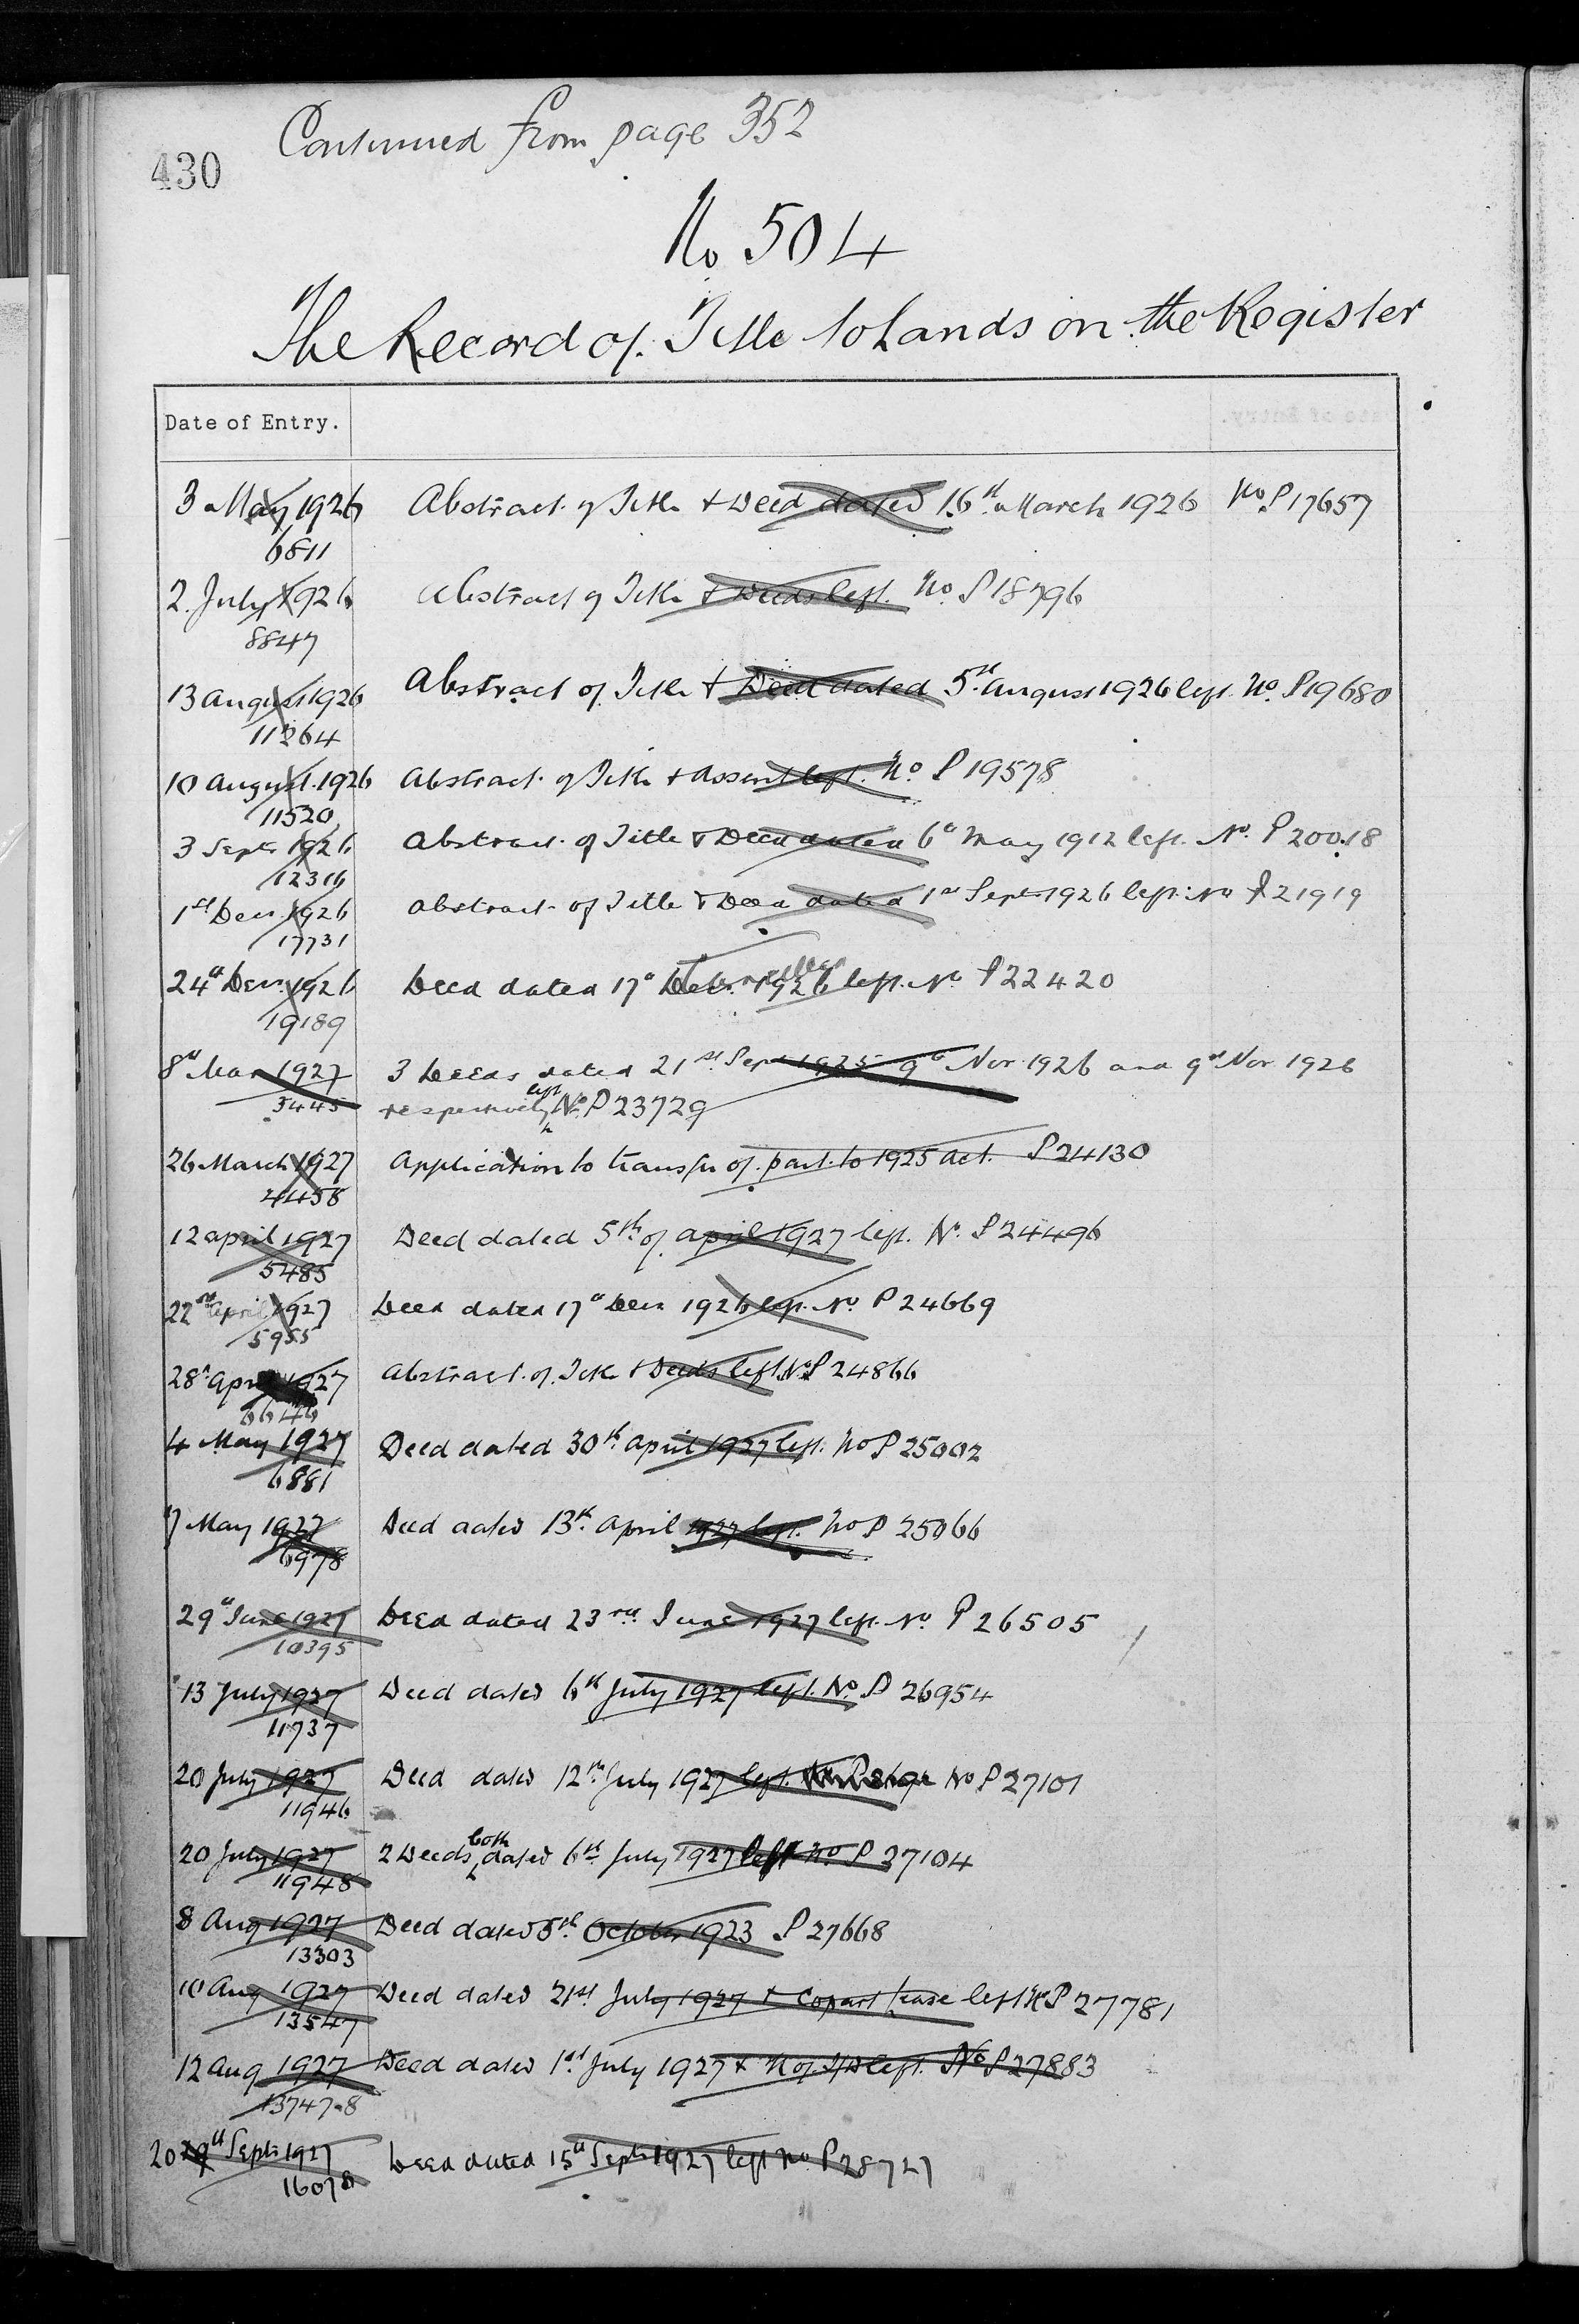 Continued from page 352
430
No 504
The Record of Title to Lands on the Register
Date of Entry.
3 May 1926 Abstract of Title + Deed dated 16th March 1926 No P17657
6811
2 July 1926 Abstract of Title + Deeds left. No. P18796
8847
13 August 1926 Abstract of Title + Deed dated 5th August 1926 left. No. P19680
11264
10 August 1926 Abstract of Title + Assent left. No P19578
11520
3 Sept 1926 Abstract of Title + Deed dated 6th May 1912 left. No. P20018
12316
1st Decr 1926 Abstract of Title + Deed dated 1st Sept 1926 left No P21919
17731
24th Decr 1926 Deed dated 17th 1926 left. No P22420
19189
8th Mar 1927 3 Deeds dated 21st Sept 1925 9th Nov 1926 and 9th Nov 1926
3445 respectively left No. P23729
26 March 1927 Application to transfer of part to 1925 Act. P24130
4458
12 April 1927 Deed dated 5th of April 1927 left. No. P24496
5485
22nd April 1927 Deed dated 17th Decr 1926 left. No. P24669
5955
28th April 1927 Abstract of Title + Deeds left No. P24866
6646
4 May 1927 Deed dated 30th April 1927 left. No P25002
6881
7 May 1927 Deed dated 13th April 1927 left. No P25066
6978
29th June 1927 Deed dated 23rd June 1927 left. No P26505
10395
13 July 1927 Deed dated 6th July 1927 left. No. P26954
11737
20 July 1927 Deed dated 12th July 1927 left. No P27101
11946
20 July 1927 2 Deeds both dated 6th July 1927 left No P27104
11948
8 Aug 1927 Deed dated 5th October 1923 P27668
13303
10 Aug 1927 Deed dated 21st July 1927 + Copart lease left No P27781
13547
12 Aug 1927 Deed dated 1st July 1927 + left. No P27883
13747-8
20 Sept 1927 Deed dated 15th Sept 1927 left No P28727
16078